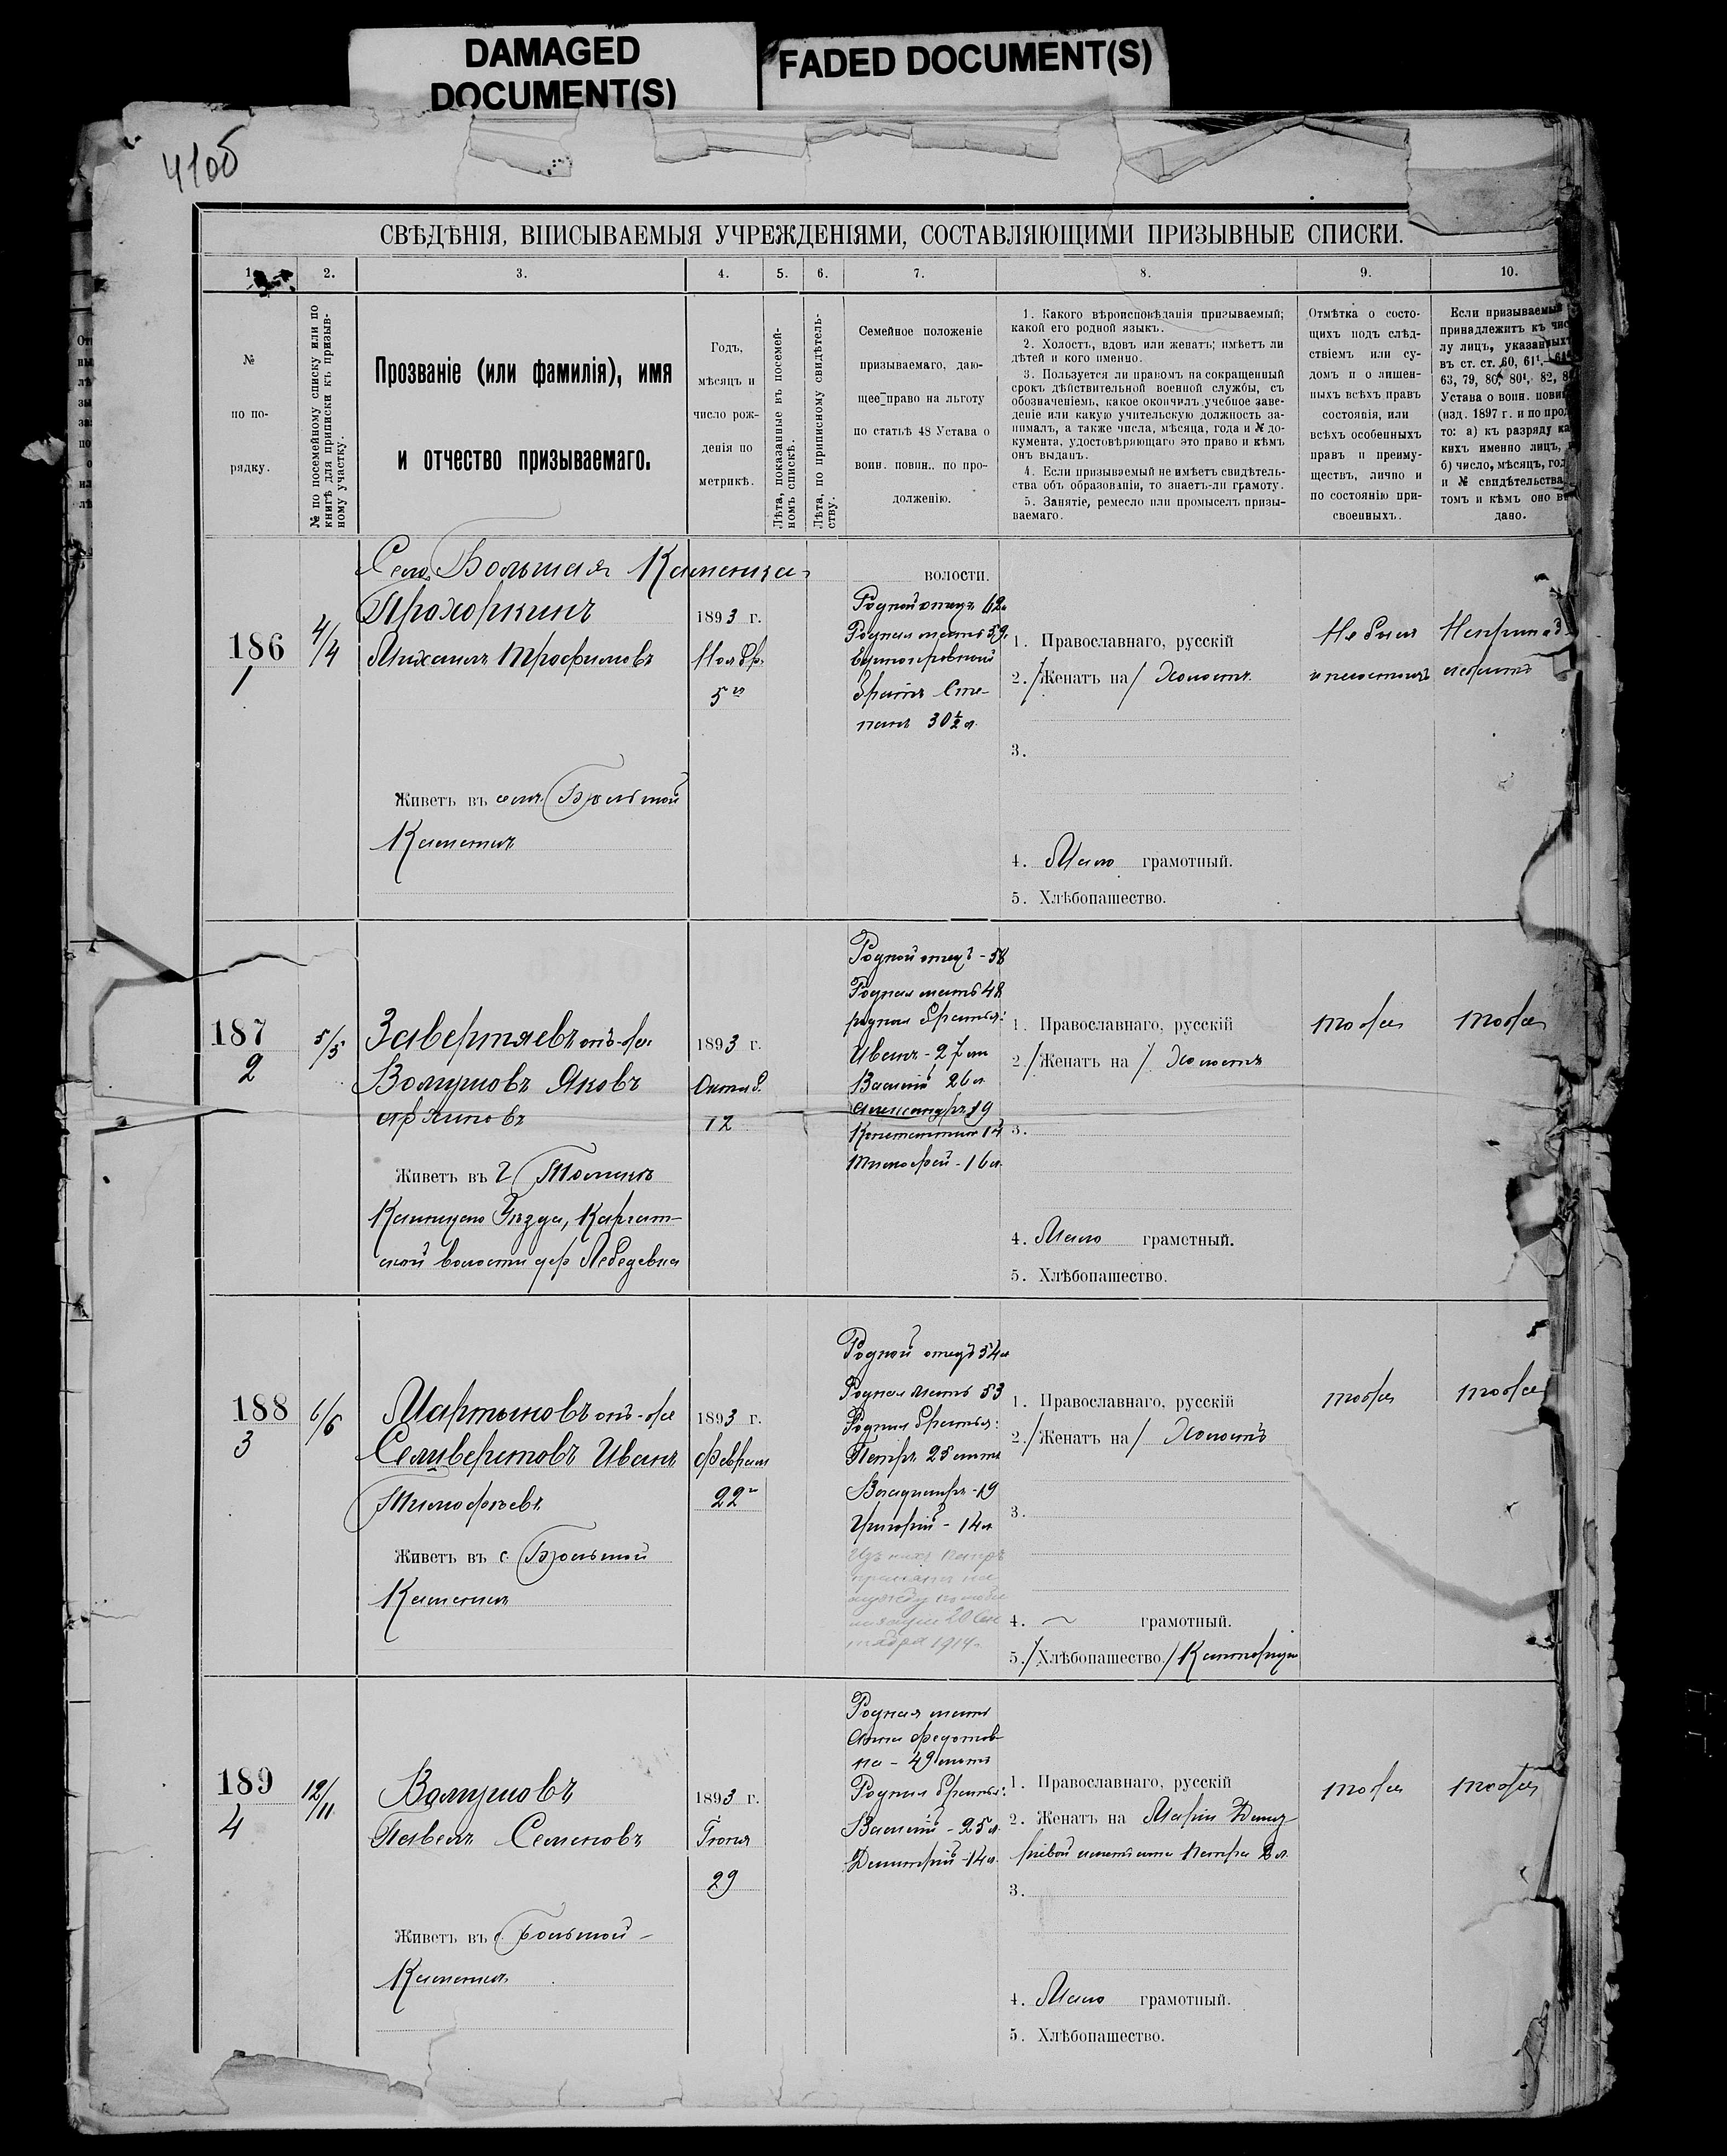 DAMAGED
DOCUMENT(S)
FADED DOCUMENT(S)
41об
СВѢДѢНІЯ, ВПИСЫВАЕМЫЯ УЧРЕЖДЕНІЯМИ, СОСТАВЛЯЮЩИМИ ПРИЗЫВНЫЕ СПИСКИ.
1. 2. 3. 4. 5. 6. 7. 8. 9. 10.
№
по по-
рядку.
№ по посемейному списку или по
книгѣ для приписки къ призыв-
ному участку.
Прозваніе (или фамилія), имя
и отчество призываемаго.
Годъ,
мѣсяцъ и
число рож-
денія по
метрикѣ.
Лѣта, показанные въ посемей-
номъ спискѣ.
Лѣта, по приписному свидѣтель-
ству.
Семейное положеніе
призываемаго, даю-
щее право на льготу
по статьѣ 48 Устава о
воин. повин.. по про-
долженію.
1. Какого вѣроисповѣданія призываемый;
какой его родной языкъ.
2. Холостъ, вдовъ или женатъ; имѣетъ ли
дѣтей и кого именно.
3. Пользуется ли правомъ на сокращенный
срокъ дѣйствительной военной службы, съ
обозначеніемъ, какое окончилъ учебное заве-
деніе или какую учительскую должность за-
нималъ, а также числа, мѣсяца, года и № до-
кумента, удостовѣряющаго это право и кѣмъ
онъ выданъ.
4. Если призываемый не имѣетъ свидѣтель-
ства объ образованіи, то знаетъ-ли грамоту.
5. Занятіе, ремесло или промыселъ призы-
ваемаго.
Отмѣтка о состо-
щихъ подъ слѣд-
ствіемъ или су-
домъ и о лишен-
ныхъ всѣхъ правъ
состоянія, или
всѣхъ особенныхъ
правъ и преиму-
ществъ, лично и
по состоянію при-
своенныхъ.
Если призываемый
принадлежитъ къ чис
лу лицъ, указанныхъ
въ ст. ст. 60, 61¹,
63, 79, 80, 80¹, 82,
Устава о воин. повин
(изд. 1897 г. и по прод
то: а) къ разряду ка
кихъ именно лицъ,
б) число, мѣсяцъ, год
и № свидѣтельства
томъ и кѣмъ оно вы
дано.
Село Большая Каменка
волости.
186
1
4/4
Прохоркинъ
Михаилъ Трофимовъ
Живетъ въ селѣ Большой
Каменкѣ
1893 г.
Ноябр.
5го
Родной отецъ 62л
Родная мать 59.
Единокровный
братъ Сте-
панъ 30½ л.
1. Православнаго, русскій
2. /Женатъ на/ Холостъ.
3.
4. Мало грамотный.
5. Хлѣбопашество.
Не былъ
и не состоитъ
Непринад-
лежитъ
187
2
5/5
Завертяевъ онъ-же
Волгуновъ Яковъ
Живетъ въ Г Томскѣ
Каинскаго Уѣзда, Каргат-
ской волости дер Лебедевка
1893 г.
Октяб.
12
Родной отецъ - 58
Родная мать 48
родные братья:
Иванъ - 27 лѣт
Василій 26 л
Александръ 19
Константинъ 14
Тимофей - 16 л.
1. Православнаго, русскій
2. /Женатъ на/ Холостъ
3.
4. Мало грамотный.
5. Хлѣбопашество.
тоже
тоже
188
3
6/6
Мартыновъ онъ-же
Селиверстовъ Иванъ
Тимофѣевъ
Живетъ въ с. Большой
Каменкѣ
1893 г.
Февраля
22го
Родной отецъ 54 л
Родная мать 53
Родные братья:
Петръ 25 лѣтъ
Владиміръ - 19
Григорій - 14 л.
Изъ нихъ Петръ
призванъ на
службу по моби
лизаціи 20 Сен
тября 1914 г.
1. Православнаго, русскій
2. /Женатъ на/ Холостъ
3.
4. ~ грамотный.
5. /Хлѣбопашество./ Конторщикъ
тоже
тоже
189
4
12/11
Волгуновъ
Павелъ Семеновъ
Живетъ въ с. Большой -
Каменкѣ
1893 г.
Іюня
29
Родная мать
Анна Федотов
на - 49 лѣтъ
Родные братья:
Василій - 25 л.
Димитрій - 14 л.
1. Православнаго, русскій
2. Женатъ на Маріи Дмит
ріевой имѣетъ сына Петра 2 л.
3.
4. Мало грамотный.
5. Хлѣбопашество.
тоже
тоже